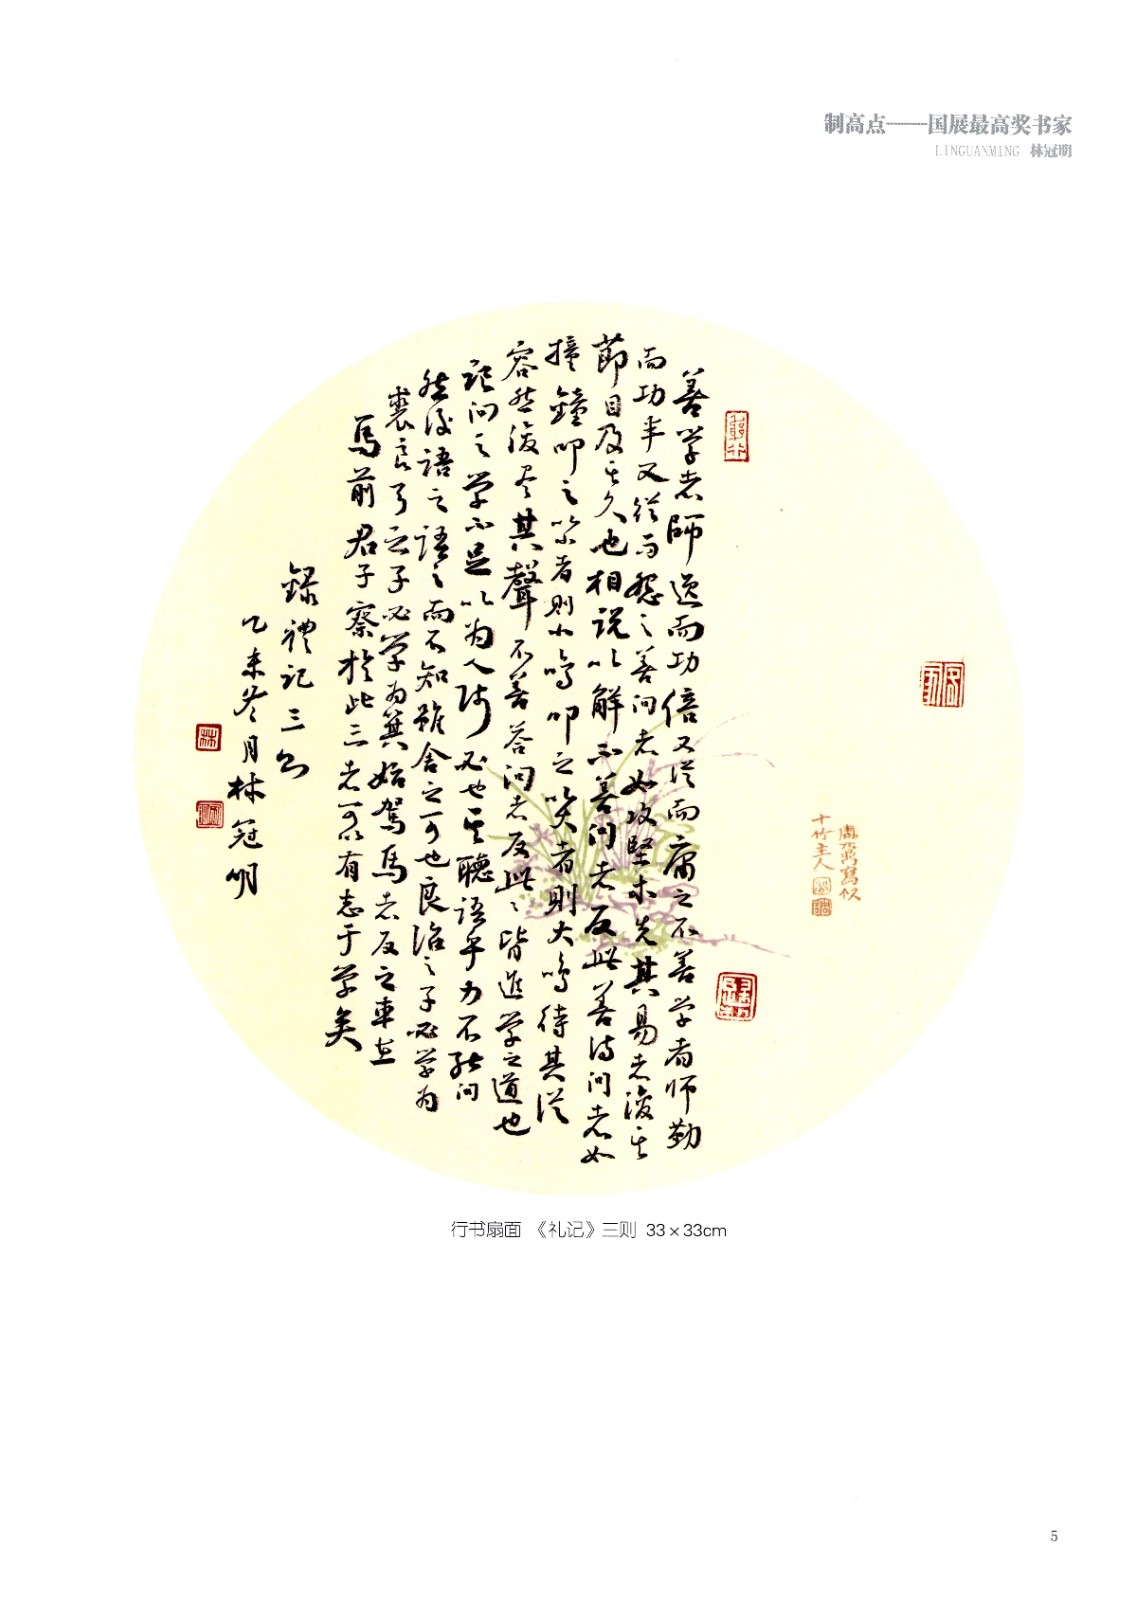 制高点——国展最高奖书家
LINGUANMING 林冠明
善学者師逸而功倍又從而庸之不善学者师勤
而功半又從而怨之善问者如攻堅木先其易者後其
節目及其久也相説以解不善问者反此善待问者如
撞鐘叩之以小者則小鳴叩之以大者則大鳴待其從
容然後尽其聲不善答问者反此此皆進学之道也
記问之学不足以为人师必也其聽語乎力不能问
然後語之語之而不知雖舍之可也良冶之子必学为
裘良弓之子必学为箕始駕馬者反之車在
馬前君子察於此三者可以有志于学矣
録禮记三则
乙未冬月林冠明
林
寫似
十竹主人
行书扇面 《礼记》三则 33×33cm
5